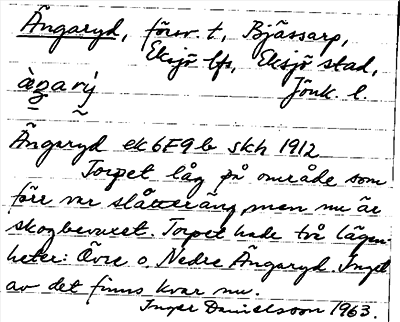 Ängaryd, försv. t, Bjässarp,
Eksjö lfs, Eksjö stad,
àgarý Jönk. l.
Ängaryd ek 6E9b skh 1912
Torpet låg på område som
förr var slåtteräng men nu är
skogbevuxet. Torpet hade två lägen-
heter: Övre o. Nedre Ängaryd. Inget
av det finns kvar nu.
Inger Danielsson 1963.